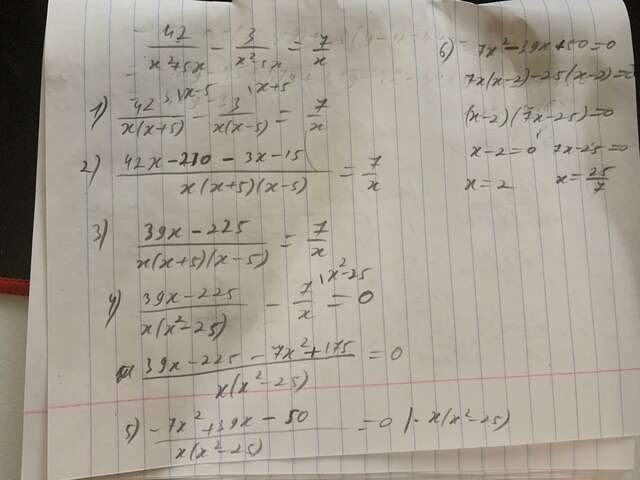 42/(x²+5x) - 3/(x²-5x) = 7/x
1) 42/(x(x+5)) - 3/(x(x-5)) = 7/x
2) (42x-210-3x-15)/(x(x+5)(x-5)) = 7/x
3) (39x-225)/(x(x+5)(x-5)) = 7/x
4) (39x-225)/(x(x²-25)) - 7/x \x²-25 = 0
(39x-225-7x²+175)/(x(x²-25)) = 0
5) (-7x²+39x-50)/(x(x²-25)) = 0 |· x(x²-25)
6) 7x²-39x+50=0
7x(x-2)-25(x-2)=0
(x-2)(7x-25)=0
x-2=0 7x-25=0
x=2 x=25/7